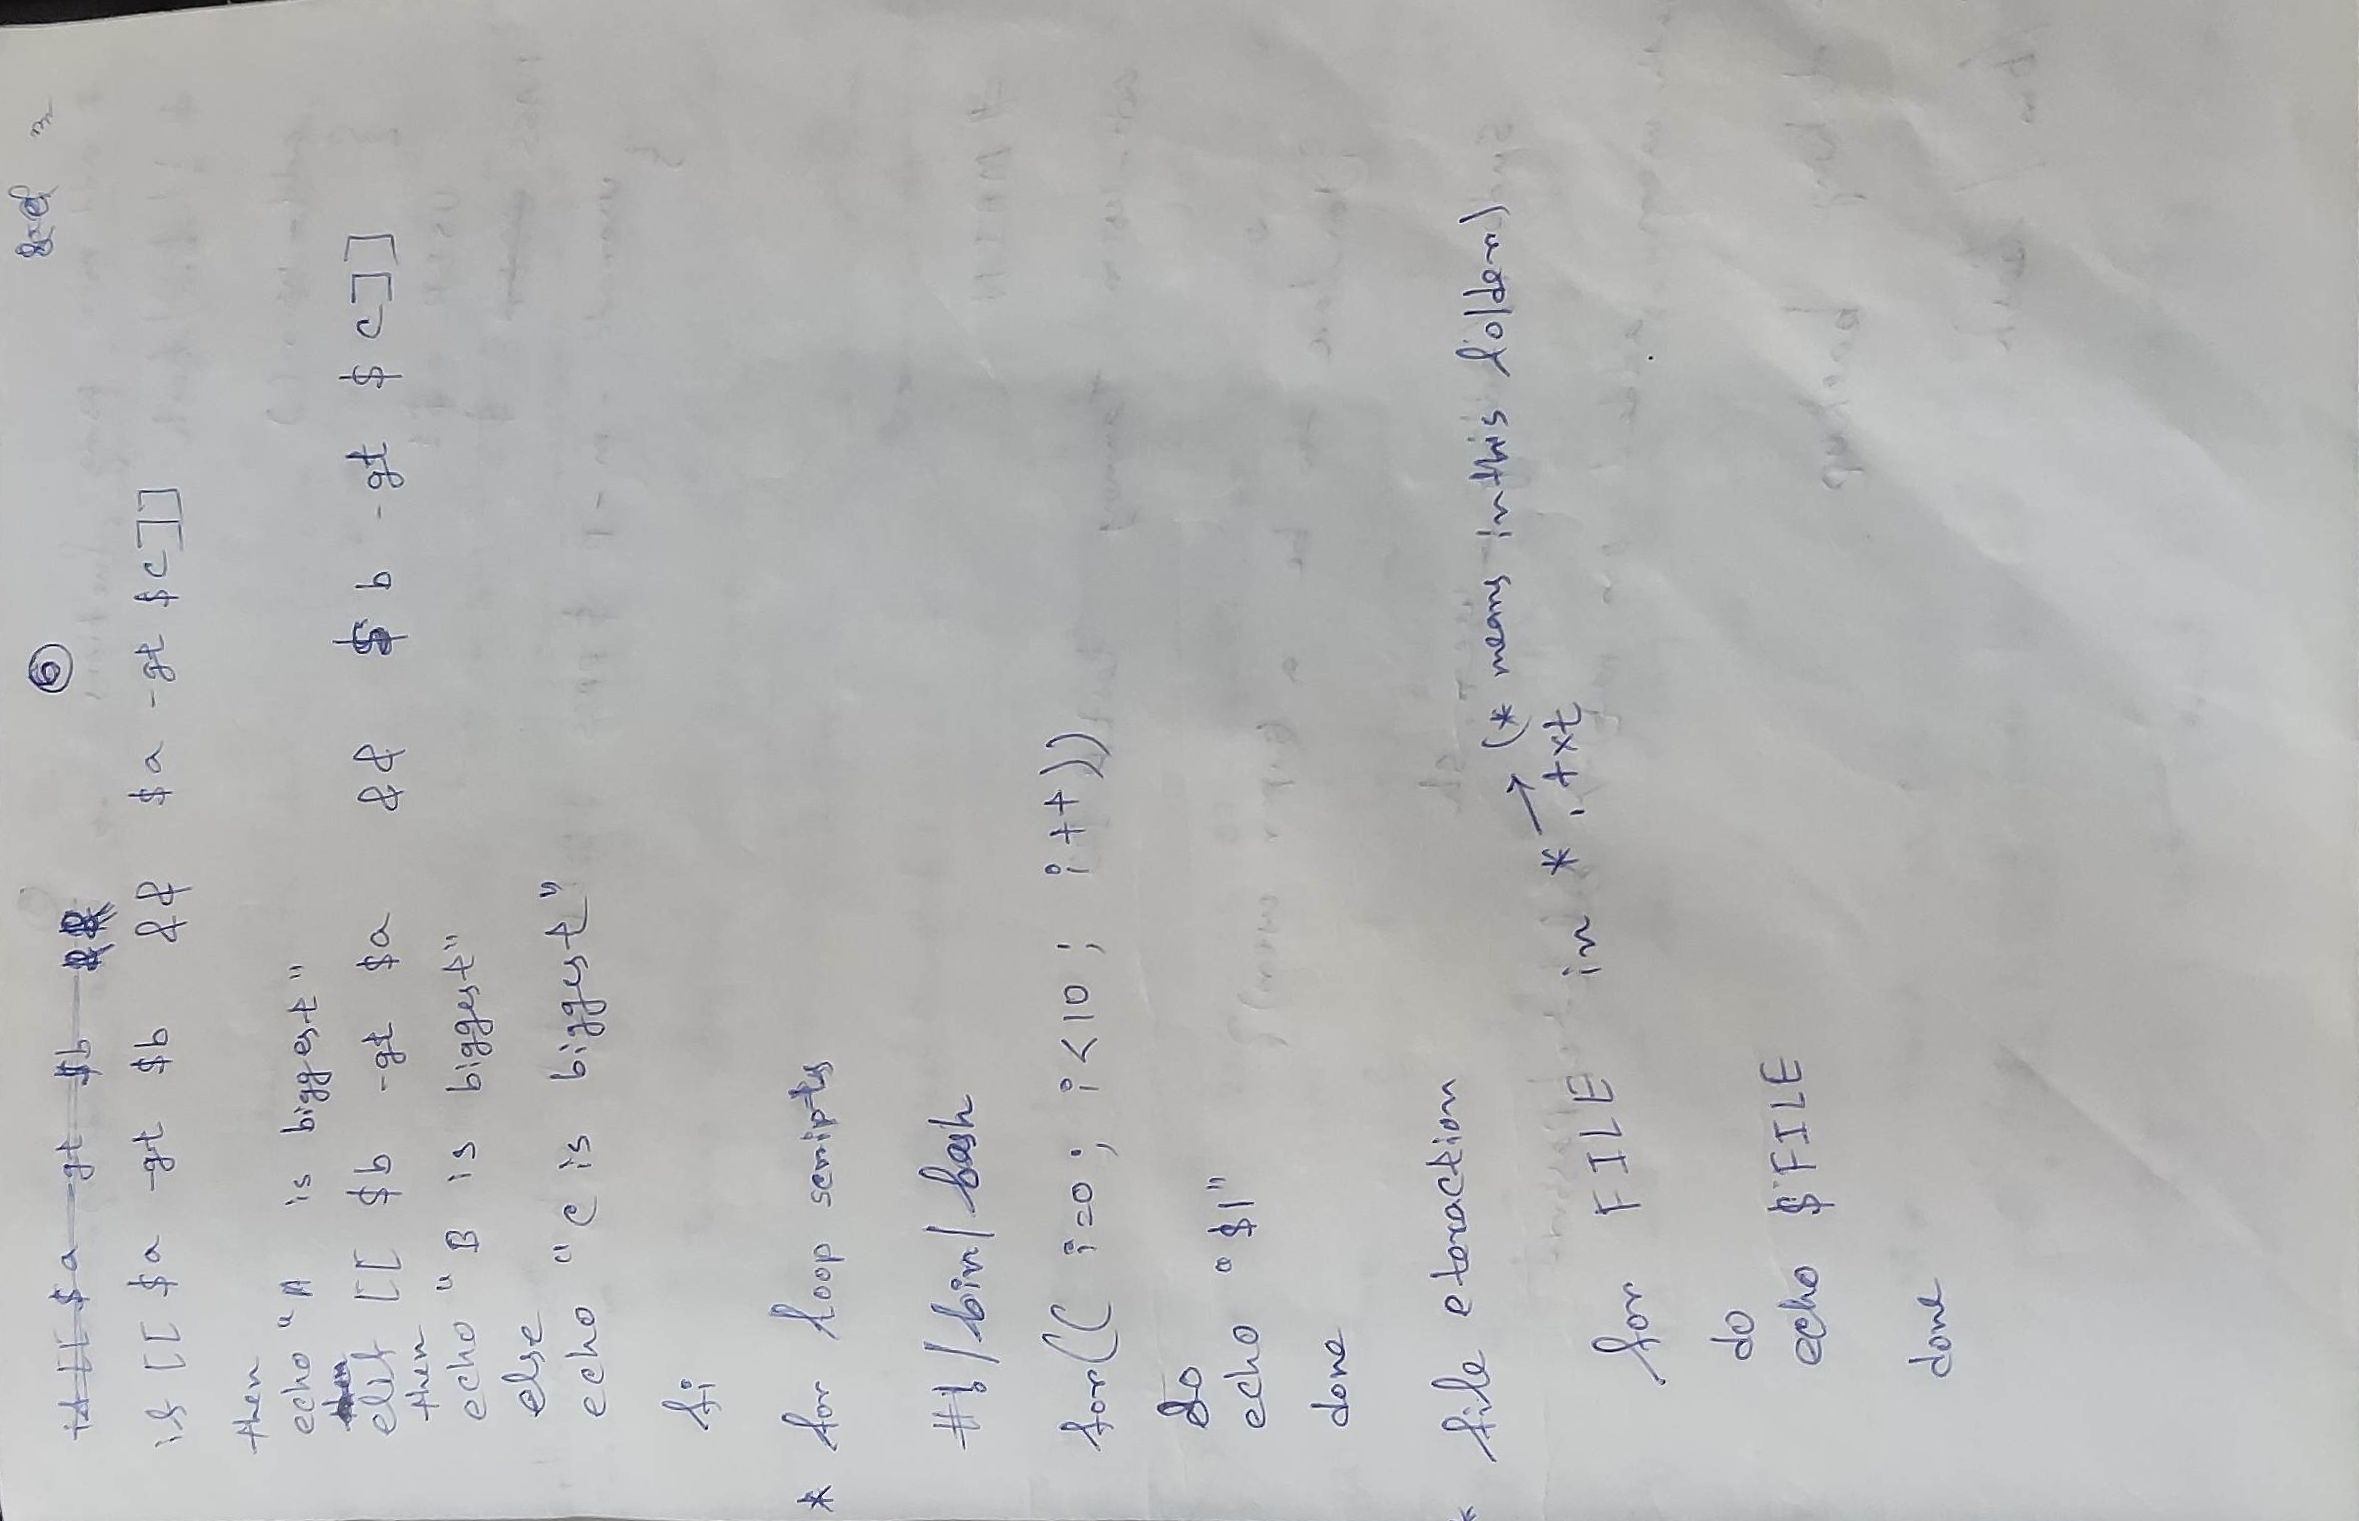 6
if [[ $a -gt $b &&
if [[ $a -gt $b && $a -gt $c]]
then
echo "A is biggest"
then
elif [[ $b -gt $a && $b -gt $c]]
then
echo "B is biggest"
else
echo "C is biggest"
fi
* for loop scripts
#!/bin/bash
for(( i=0; i<10; i++))
do
echo "$1"
done
* file eteraction
(* means in this folder)
for FILE in *.txt
do
echo $FILE
done